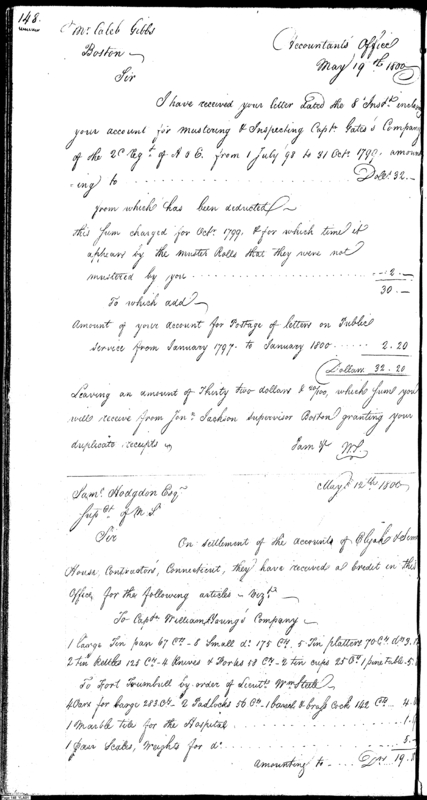 148.
Mr. Caleb Gibbs
Boston
Accountants Office
May 19th 1800
Sir
I have received your letter dated the 8 Inst. inclosing
your account for mustering & Inspecting Capt. Gates's Company
of the 2d Regt. of A & E. from 1 July 98 to 31 Oct. 1799, amount
-ing to Doll. 32.-
from which has been deducted
this sum charged for Oct. 1799, & for which time it
appears by the muster Rolls that they were not
mustered by you 2.-
30.-
To which add
Amount of your account for Postage of letters on Public
service from January 1797. to January 1800 2.20
Dollars 32.20
Leaving an amount of Thirty two dollars & 20/100, which sum you
will receive from Jon. Jackson supervisor Boston granting your
duplicate receipts
I am & W.S.
May 12th 1800
Saml. Hodgdon Esqr
Supt. of M S.
Sir
On settlement of the accounts of Elijah &
House, Contractors, Connecticut, they have received a credit in this
Office, for the following articles Vizt.
To Capt. William Young's Company
1 large Tin pan 67 Cts - 8 Small do. 175 Cts. 5 Tin platters 70 Cts
2 tin kettles 125 Cts - 4 Knives & Forks 58 Cts - 2 tin cups 25 Cts 1 pine table
To Fort Trumbull by order of Lieut. Wm Steele
4 Oars for barge 283 Cts - 2 Padlocks 56 Cts - 1 barrel & brass Cock 142 Cts 4.
1 Marble tile for the Hospital 1.
1 pair Scales, Weights for do. 5.
amounting to 19.